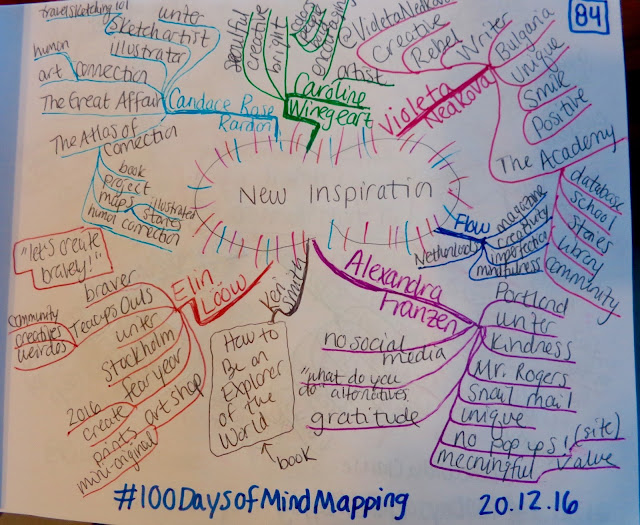 travelsketching101
writer
Sketch artist
illustrator
human
art connection
The Great Affair
Candace Rose
Rardon
The Atlas of
Connection
book
project
maps
illustrated
state
human connection
beautiful
creative
bright
people
encouraging
artist
Caroline
Winegeart
@VioletaNedkova
Creative
Rebel
Writer
Violeta
Nedkova
Bulgaria
unique
Smile
Positive
The Academy
database
school
stories
library
community
84
New Inspiration
Flow
Netherlands
magazine
creativity
imperfection
mindfulness
Elin
Lööw
"let's create
bravely!"
braver
Teacups Owls
community
creatives
weirdos
writer
Stockholm
fear year
art shop
2016
create
prints
mini-original
Keri
Smith
How to
Be an
Explorer
of the
World
book
Alexandra
Franzen
no social
media
"what do you
do" alternatives
gratitude
Portland
writer
Kindness
Mr. Rogers
Snail mail
unique
no pop ups! (site)
meaningful value
#100DaysofMindMapping
20.12.16